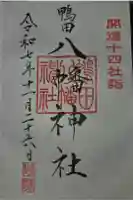 開運十四社詣
鴨田
八幡神社
令和七年十一月二十六日